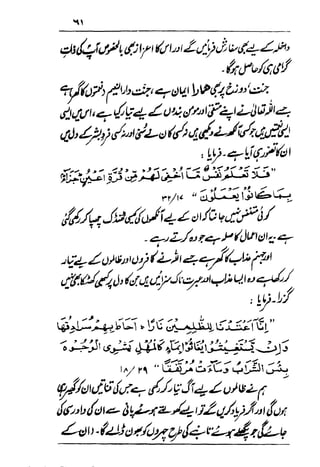 ۶۱
داخلہ کے لیے بھی سفارش فرمائیں گے اور اس کا اعزاز بھی بالخصوص آپؐ کی ذاتِ
گرامی ہی کو حاصل ہوگا۔
جنت و دوزخ پر بھی ھمارا ایمان ہے، جنت دارالنعیم (نعمتوں کا گھر) ہے
جسے اللہ تعالیٰ نے اپنے متقی اور مومن بندوں کے لیے تیار کیا ہے، اس میں ایسی
ایسی نعمتیں ہیں جو کسی آنکھ نے دیکھیں ہیں نہ کسی کان نے سنی اور نہ کسی فردِ بشر کے دل میں
ان کا تصور ہی آیا ہے۔ فرمایا:
"فَلَا تَعْلَمُ نَفْسٌ مَّآ اُخْفِیَ لَھُمْ مِّنْ قُرَّۃِ اَعْیُنٍ جَزَآءً
بِمَا کَانُوْا یَعْمَلُوْنَ" ۳۲/۱۷
کوئی متنفس نہیں جانتا کہ ان کے لیے آنکھوں کی کیسی ٹھنڈک چھپا کر رکھی گئی
ہے۔ یہ ان اعمال کا صلہ ہے جو وہ کرتے رہے۔
اور جہنم عذاب کا گھر ہے جسے اللہ نے کافروں اور ظالموں کے لیے تیار
کر رکھا ہے وہ ایسا عذاب اور عبرت ناک سزائیں ہیں جن کا دل پر کبھی کھٹکا بھی نہیں
گزرا۔ فرمایا:
"اِنَّآ اَعْتَدْنَا لِلظّٰلِمِیْنَ نَارًا اَحَاطَ بِھِمْ سُرَادِقُھَا
وَاِنْ یَّسْتَغِیْثُوْا یُغَاثُوْا بِمَآءٍ کَالْمُھْلِ یَشْوِی الْوُجُوْہَ
بِئْسَ الشَّرَابُ وَسَآءَتْ مُرْتَفَقًا" ۱۸/۲۹
ہم نے ظالموں کے لیے آگ تیار کر رکھی ہے جس کی قناتیں ان کو گھیر رہی
ہوں گی اور اگر فریاد کریں گے تو ایسے کھولتے ہوئے پانی سے ان کی دادرسی کی
جائے گی جو پگھلے ہوئے تانبے کی طرح چہروں کو بھون ڈالے گا۔ (ان کے